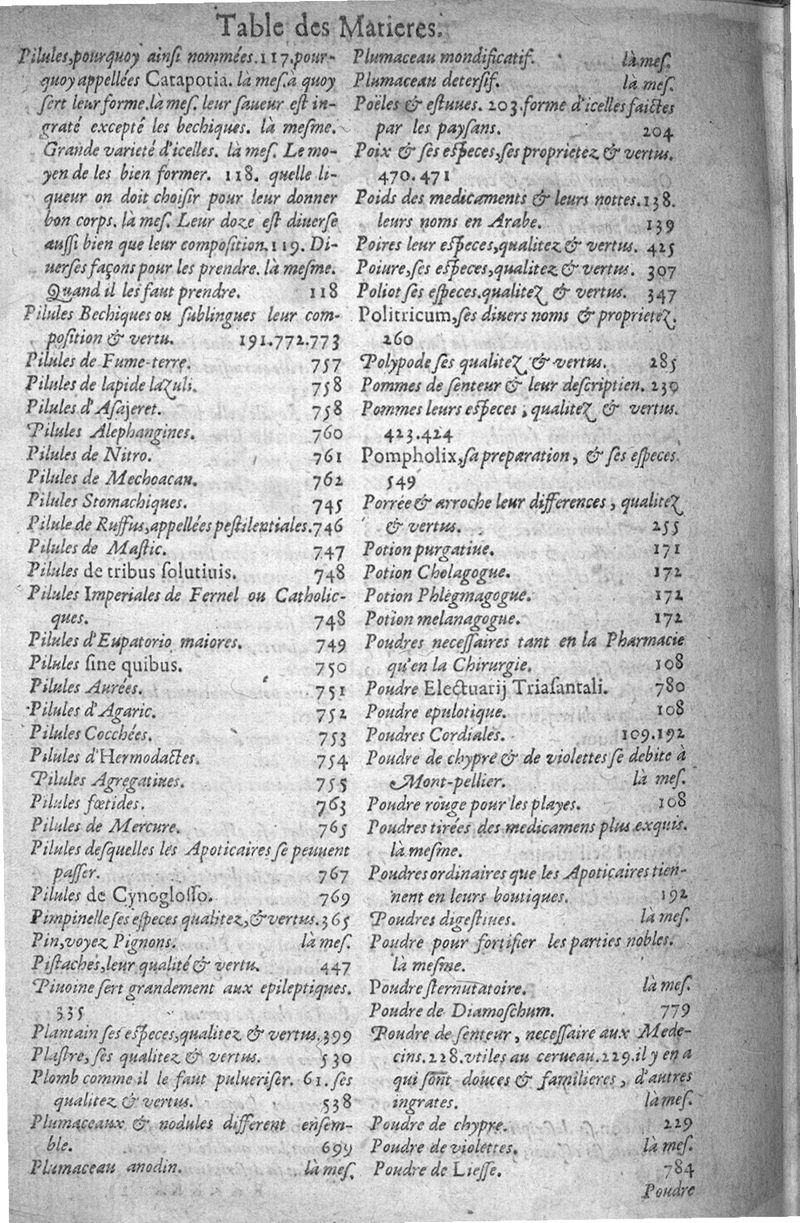 Table des Matieres.
Pilules, pourquoy ainsi nommées. 117. pour-
quoy appellées Catapotia. là mes. à quoy
sert leur forme. là mes. leur saueur est in-
graté excepté les bechiques. là mesme.
Grande varieté d'icelles. là mes. Le mo-
yen de les bien former. 118. quelle li-
queur on doit choisir pour leur donner
bon corps. là mes. Leur doze est diuerse
aussi bien que leur composition. 119. Di-
uerses façons pour les prendre. là mesme.
Quand il les faut prendre. 118
Pilules Bechiques ou sublingues leur com-
position & vertu. 191.772.773
Pilules de Fume-terre. 757
Pilules de lapide lazuli. 758
Pilules d'Asajeret. 758
Pilules Alephangines. 760
Pilules de Nitro. 761
Pilules de Mechoacan. 762
Pilules Stomachiques. 745
Pilule de Ruffus, appellées pestilentiales. 746
Pilules de Mastic. 747
Pilules de tribus solutiuis. 748
Pilules Imperiales de Fernel ou Catholic-
ques. 748
Pilules d'Eupatorio maiores. 749
Pilules sine quibus. 750
Pilules Aurées. 751
Pilules d'Agaric. 752
Pilules Cocchées. 753
Pilules d'Hermodactes. 754
Pilules Agregatiues. 755
Pilules fœtides. 763
Pilules de Mercure. 765
Pilules desquelles les Apoticaires se peuuent
passer. 767
Pilules de Cynoglosso. 769
Pimpinelle ses especes qualitez, & vertus. 365
Pin, voyez Pignons. là mes.
Pistaches, leur qualité & vertu. 447
Piuoine sert grandement aux epileptiques.
335
Plantain ses especes, qualitez & vertus. 399
Plastre, ses qualitez & vertus. 530
Plomb comme il le faut pulueriser. 61. ses
qualitez & vertus. 538
Plumaceaux & nodules different ensem-
ble. 699
Plumaceau anodin. là mes.
Plumaceau mondificatif. là mes.
Plumaceau detersif. là mes.
Poëles & estuues. 203. forme d'icelles faictes
par les paysans. 204
Poix & ses especes, ses proprietez & vertus.
470. 471
Poids des medicaments & leurs nottes. 138.
leurs noms en Arabe. 139
Poires leur especes, qualitez & vertus. 425
Poiure, ses especes, qualitez & vertus. 307
Poliot ses especes. qualitez & vertus. 347
Politricum, ses diuers noms & proprietez.
260
Polypode ses qualitez & vertus. 285
Pommes de senteur & leur descriptien. 230
Pommes leurs especes, qualitez & vertus.
423.424
Pompholix, sa preparation, & ses especes.
549
Porrée & arroche leur differences, qualitez
& vertus. 255
Potion purgatiue. 171
Potion Cholagogue. 172
Potion Phlegmagogue. 172
Potion melanagogue. 172
Poudres necessaires tant en la Pharmacie
qu'en la Chirurgie. 108
Poudre Electuarij Triasantali. 780
Poudre epulotique. 108
Poudres Cordiales. 109.192
Poudre de chypre & de violettes se debite à
Mont-pellier. là mes.
Poudre rouge pour les playes. 108
Poudres tirées des medicamens plus exquis.
là mesme.
Poudres ordinaires que les Apoticaires tien-
nent en leurs boutiques. 192
Poudres digestiues. là mes.
Poudre pour fortifier les parties nobles.
là mesme.
Poudre sternutatoire. là mes.
Poudre de Diamoschum. 779
Poudre de senteur, necessaire aux Mede-
cins. 228. vtiles au cerueau. 229. il y en a
qui sont douces & familieres, d'autres
ingrates. là mes.
Poudre de chypre. 229
Poudre de violettes. là mes.
Poudre de Liesse. 784
Poudre